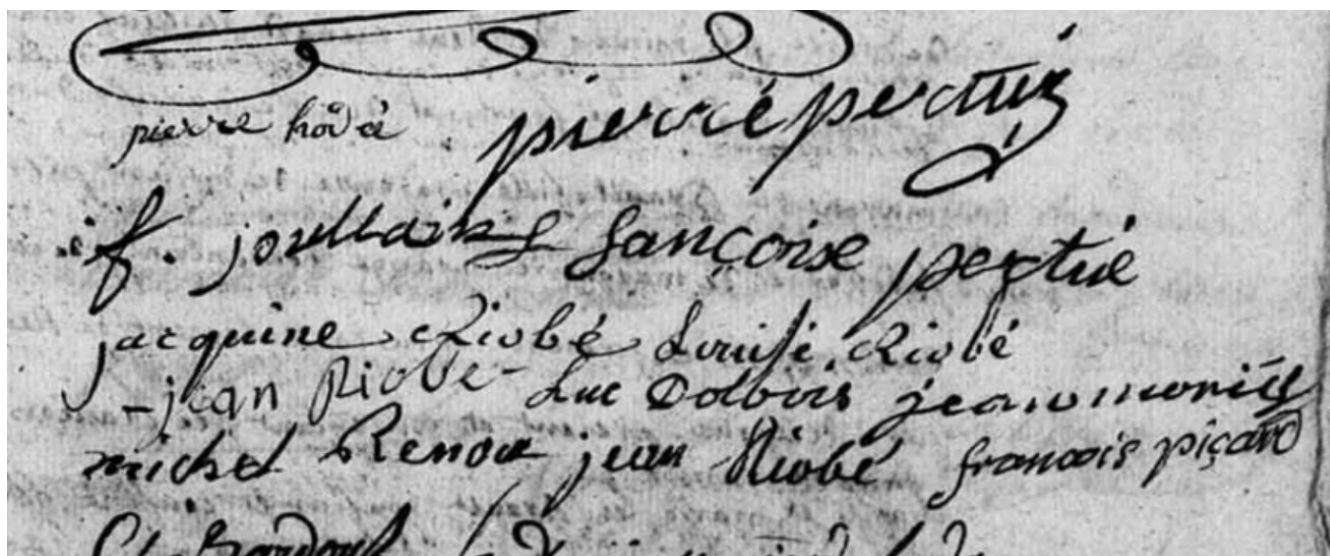 pierre hodé pierre pertuiz
f. joullain françoise pertué
jacquine Riobé Louise Riobé
jean Riobé Luc Dolbois jean moriée
michel Renou jean Riobé francois piçard